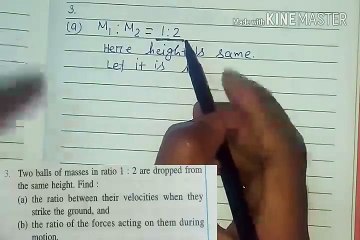 3.
Made with KINEMASTER
(a) M₁ : M₂ = 1 : 2
Here height is same.
Let it is
3. Two balls of masses in ratio 1 : 2 are dropped from
the same height. Find :
(a) the ratio between their velocities when they
strike the ground, and
(b) the ratio of the forces acting on them during
motion.